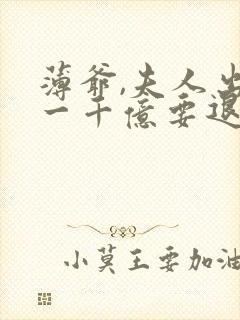 薄爷,夫人出
一千億要退
小莫王要加油